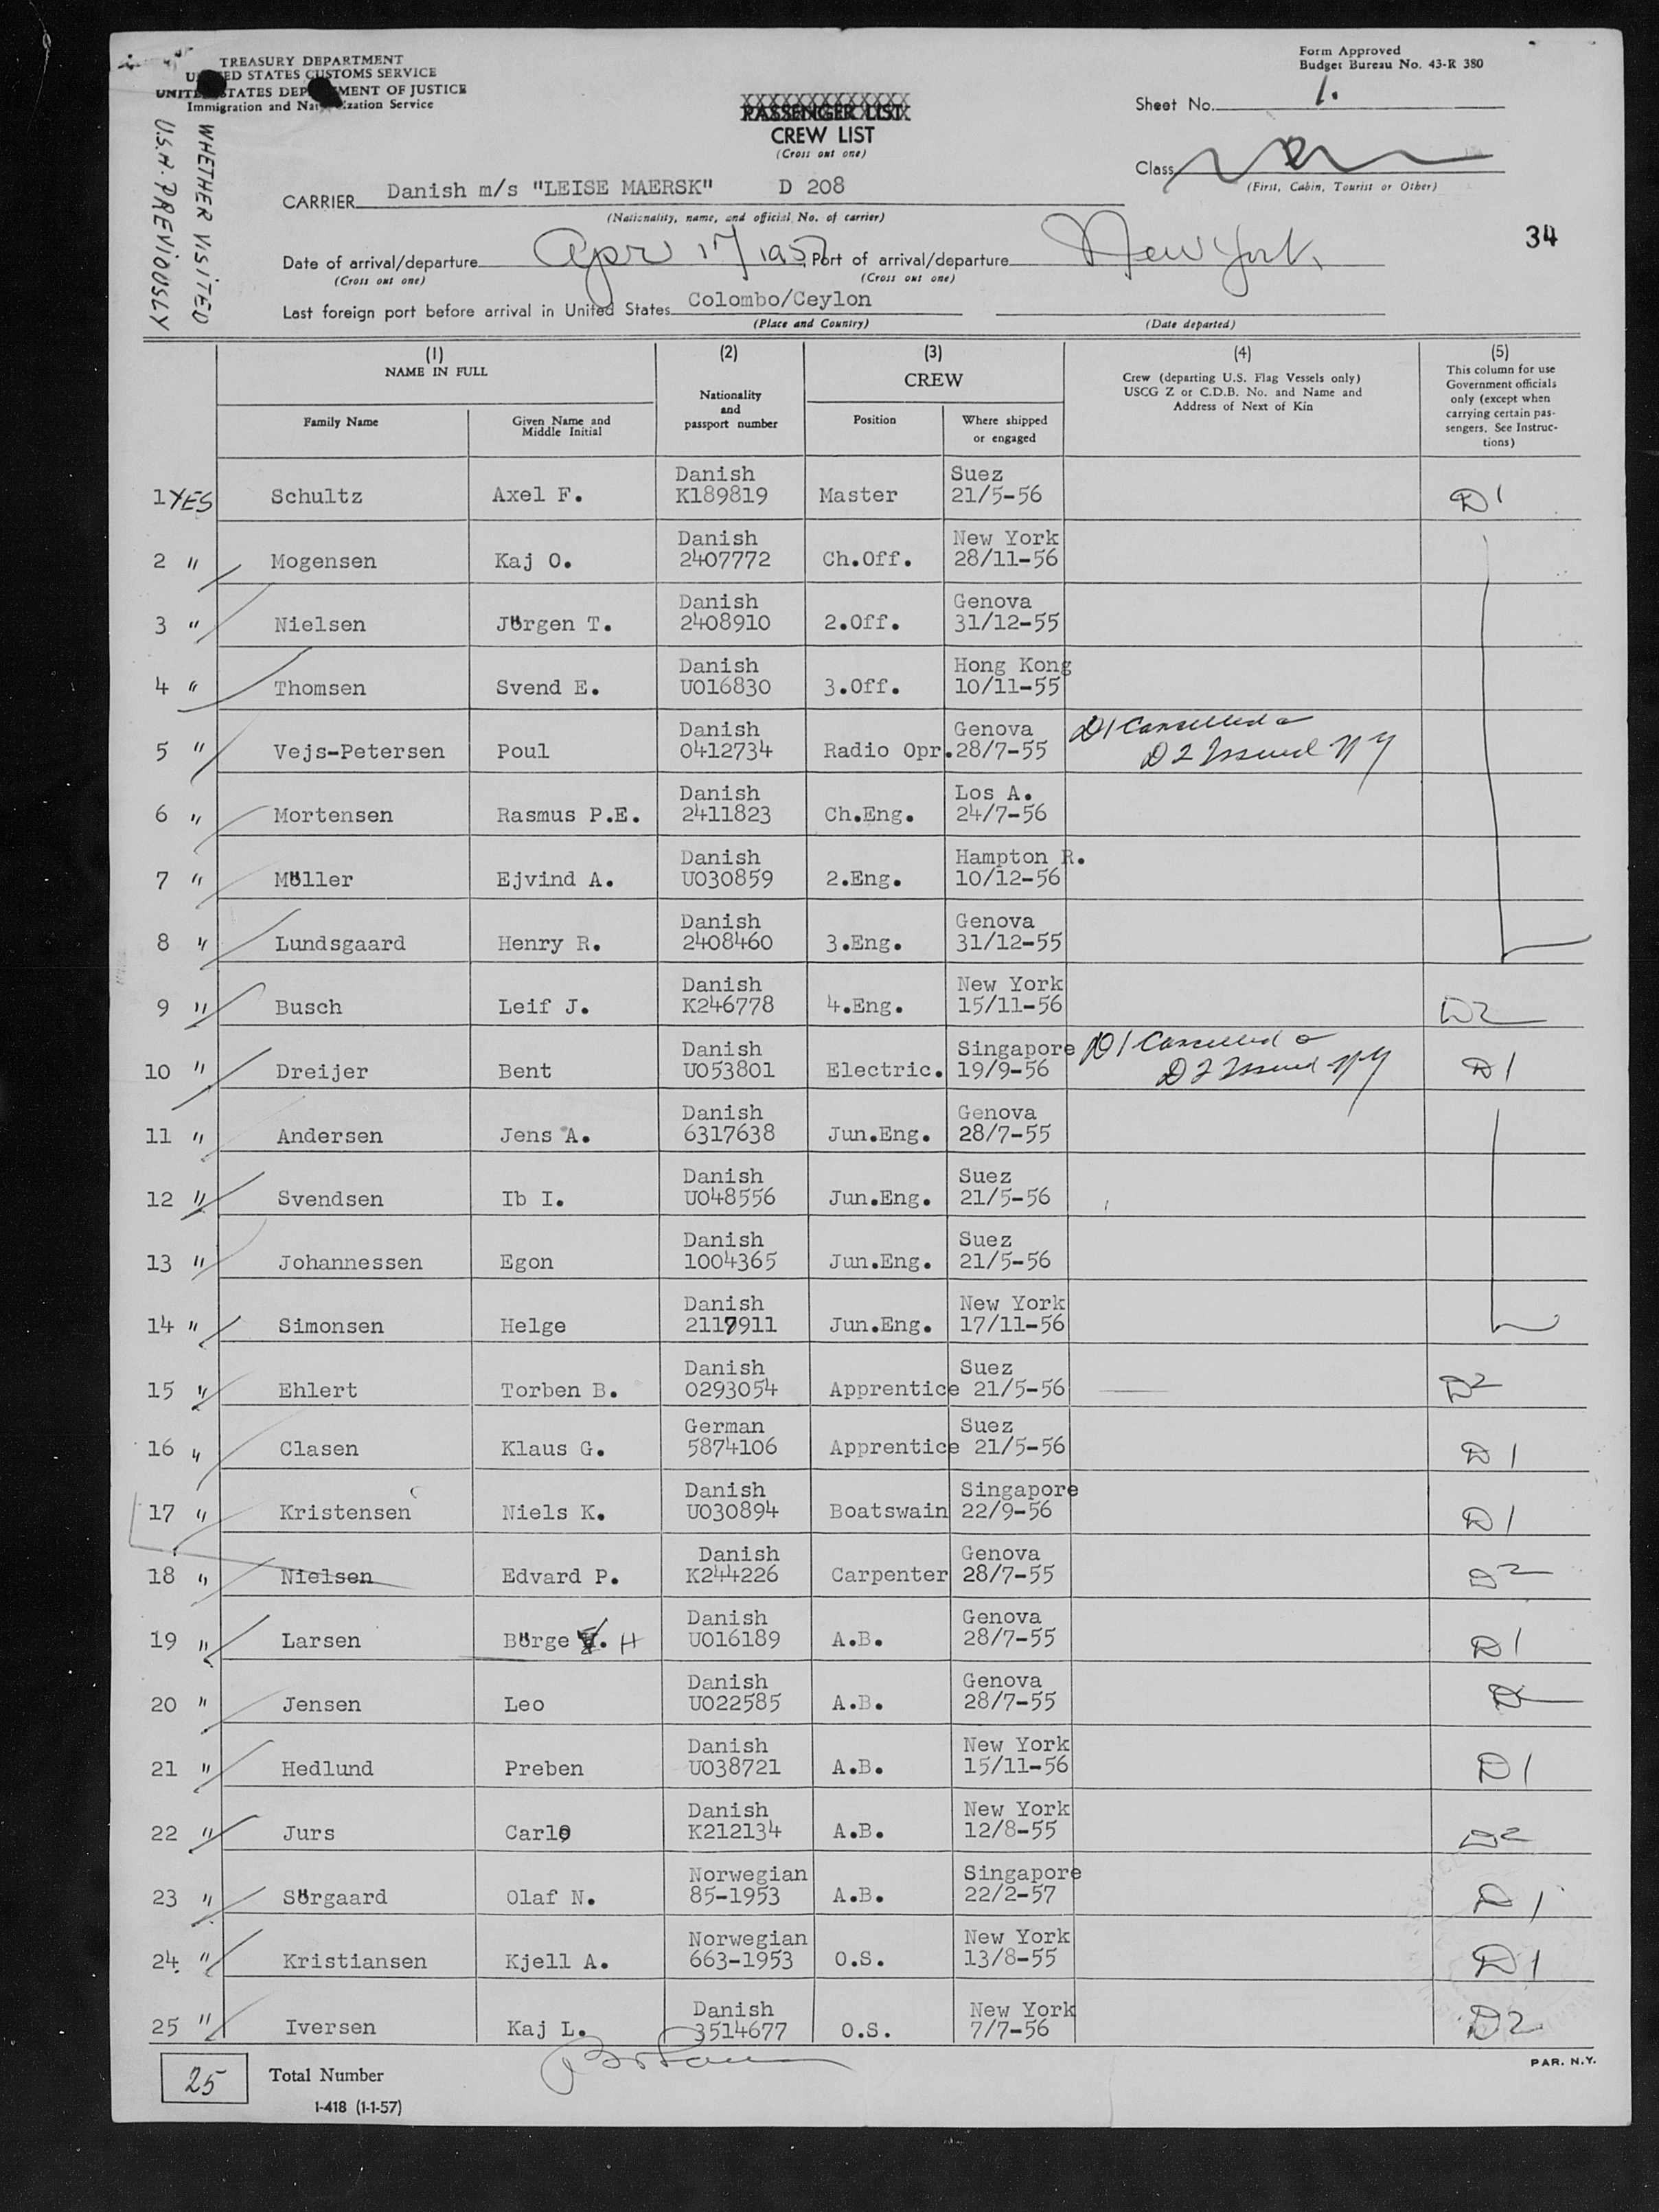 TREASURY DEPARTMENT
UNITED STATES CUSTOMS SERVICE
UNITED STATES DEPARTMENT OF JUSTICE
Immigration and Naturalization Service
Form Approved
Budget Bureau No. 43-R 380
PASSENGER LIST
CREW LIST
(Cross out one)
Sheet No. 1.
Class
(First, Cabin, Tourist or Other)
WHETHER VISITED
U.S.A. PREVIOUSLY
CARRIER Danish m/s "LEISE MAERSK" D 208
(Nationality, name, and official No. of carrier)
34
Date of arrival/departure Apr 17/1957 Port of arrival/departure New York
(Cross out one) (Cross out one)
Last foreign port before arrival in United States Colombo/Ceylon
(Place and Country) (Date departed)
(1) (2) (3) (4) (5)
NAME IN FULL
Family Name
Given Name and Middle Initial
Nationality and passport number
CREW
Position
Where shipped or engaged
Crew (departing U.S. Flag Vessels only)
USCG Z or C.D.B. No. and Name and
Address of Next of Kin
This column for use
Government officials
only (except when
carrying certain pas-
sengers. See Instruc-
tions)
Danish Suez
1 YES Schultz Axel F. K189819 Master 21/5-56 D1
Danish New York
2 " Mogensen Kaj O. 2407772 Ch.Off. 28/11-56
Danish Genova
3 " Nielsen Jörgen T. 2408910 2.Off. 31/12-55
Danish Hong Kong
4 " Thomsen Svend E. U016830 3.Off. 10/11-55
Danish Genova D1 Cancelled a
5 " Vejs-Petersen Poul 0412734 Radio Opr. 28/7-55 D2 Issued NY
Danish Los A.
6 " Mortensen Rasmus P.E. 2411823 Ch.Eng. 24/7-56
Danish Hampton R.
7 " Möller Ejvind A. U030859 2.Eng. 10/12-56
Danish Genova
8 " Lundsgaard Henry R. 2408460 3.Eng. 31/12-55
Danish New York
9 " Busch Leif J. K246778 4.Eng. 15/11-56 D2
Danish Singapore D1 Cancelled a
10 " Dreijer Bent U053801 Electric. 19/9-56 D2 Issued NY D1
Danish Genova
11 " Andersen Jens A. 6317638 Jun.Eng. 28/7-55
Danish Suez
12 " Svendsen Ib I. U048556 Jun.Eng. 21/5-56
Danish Suez
13 " Johannessen Egon 1004365 Jun.Eng. 21/5-56
Danish New York
14 " Simonsen Helge 2117911 Jun.Eng. 17/11-56
Danish Suez
15 " Ehlert Torben B. 0293054 Apprentice 21/5-56 D2
German Suez
16 " Clasen Klaus G. 5874106 Apprentice 21/5-56 D1
Danish Singapore
17 " Kristensen Niels K. U030894 Boatswain 22/9-56 D1
Danish Genova
18 " Nielsen Edvard P. K244226 Carpenter 28/7-55 D2
Danish Genova
19 " Larsen Börge H U016189 A.B. 28/7-55 D1
Danish Genova
20 " Jensen Leo U022585 A.B. 28/7-55
Danish New York
21 " Hedlund Preben U038721 A.B. 15/11-56 D1
Danish New York
22 " Jurs Carlo K212134 A.B. 12/8-55 D2
Norwegian Singapore
23 " Sörgaard Olaf N. 85-1953 A.B. 22/2-57 D1
Norwegian New York
24 " Kristiansen Kjell A. 663-1953 O.S. 13/8-55 D1
Danish New York
25 " Iversen Kaj L. 3514677 O.S. 7/7-56 D2
25 Total Number
PAR. N.Y.
I-418 (1-1-57)